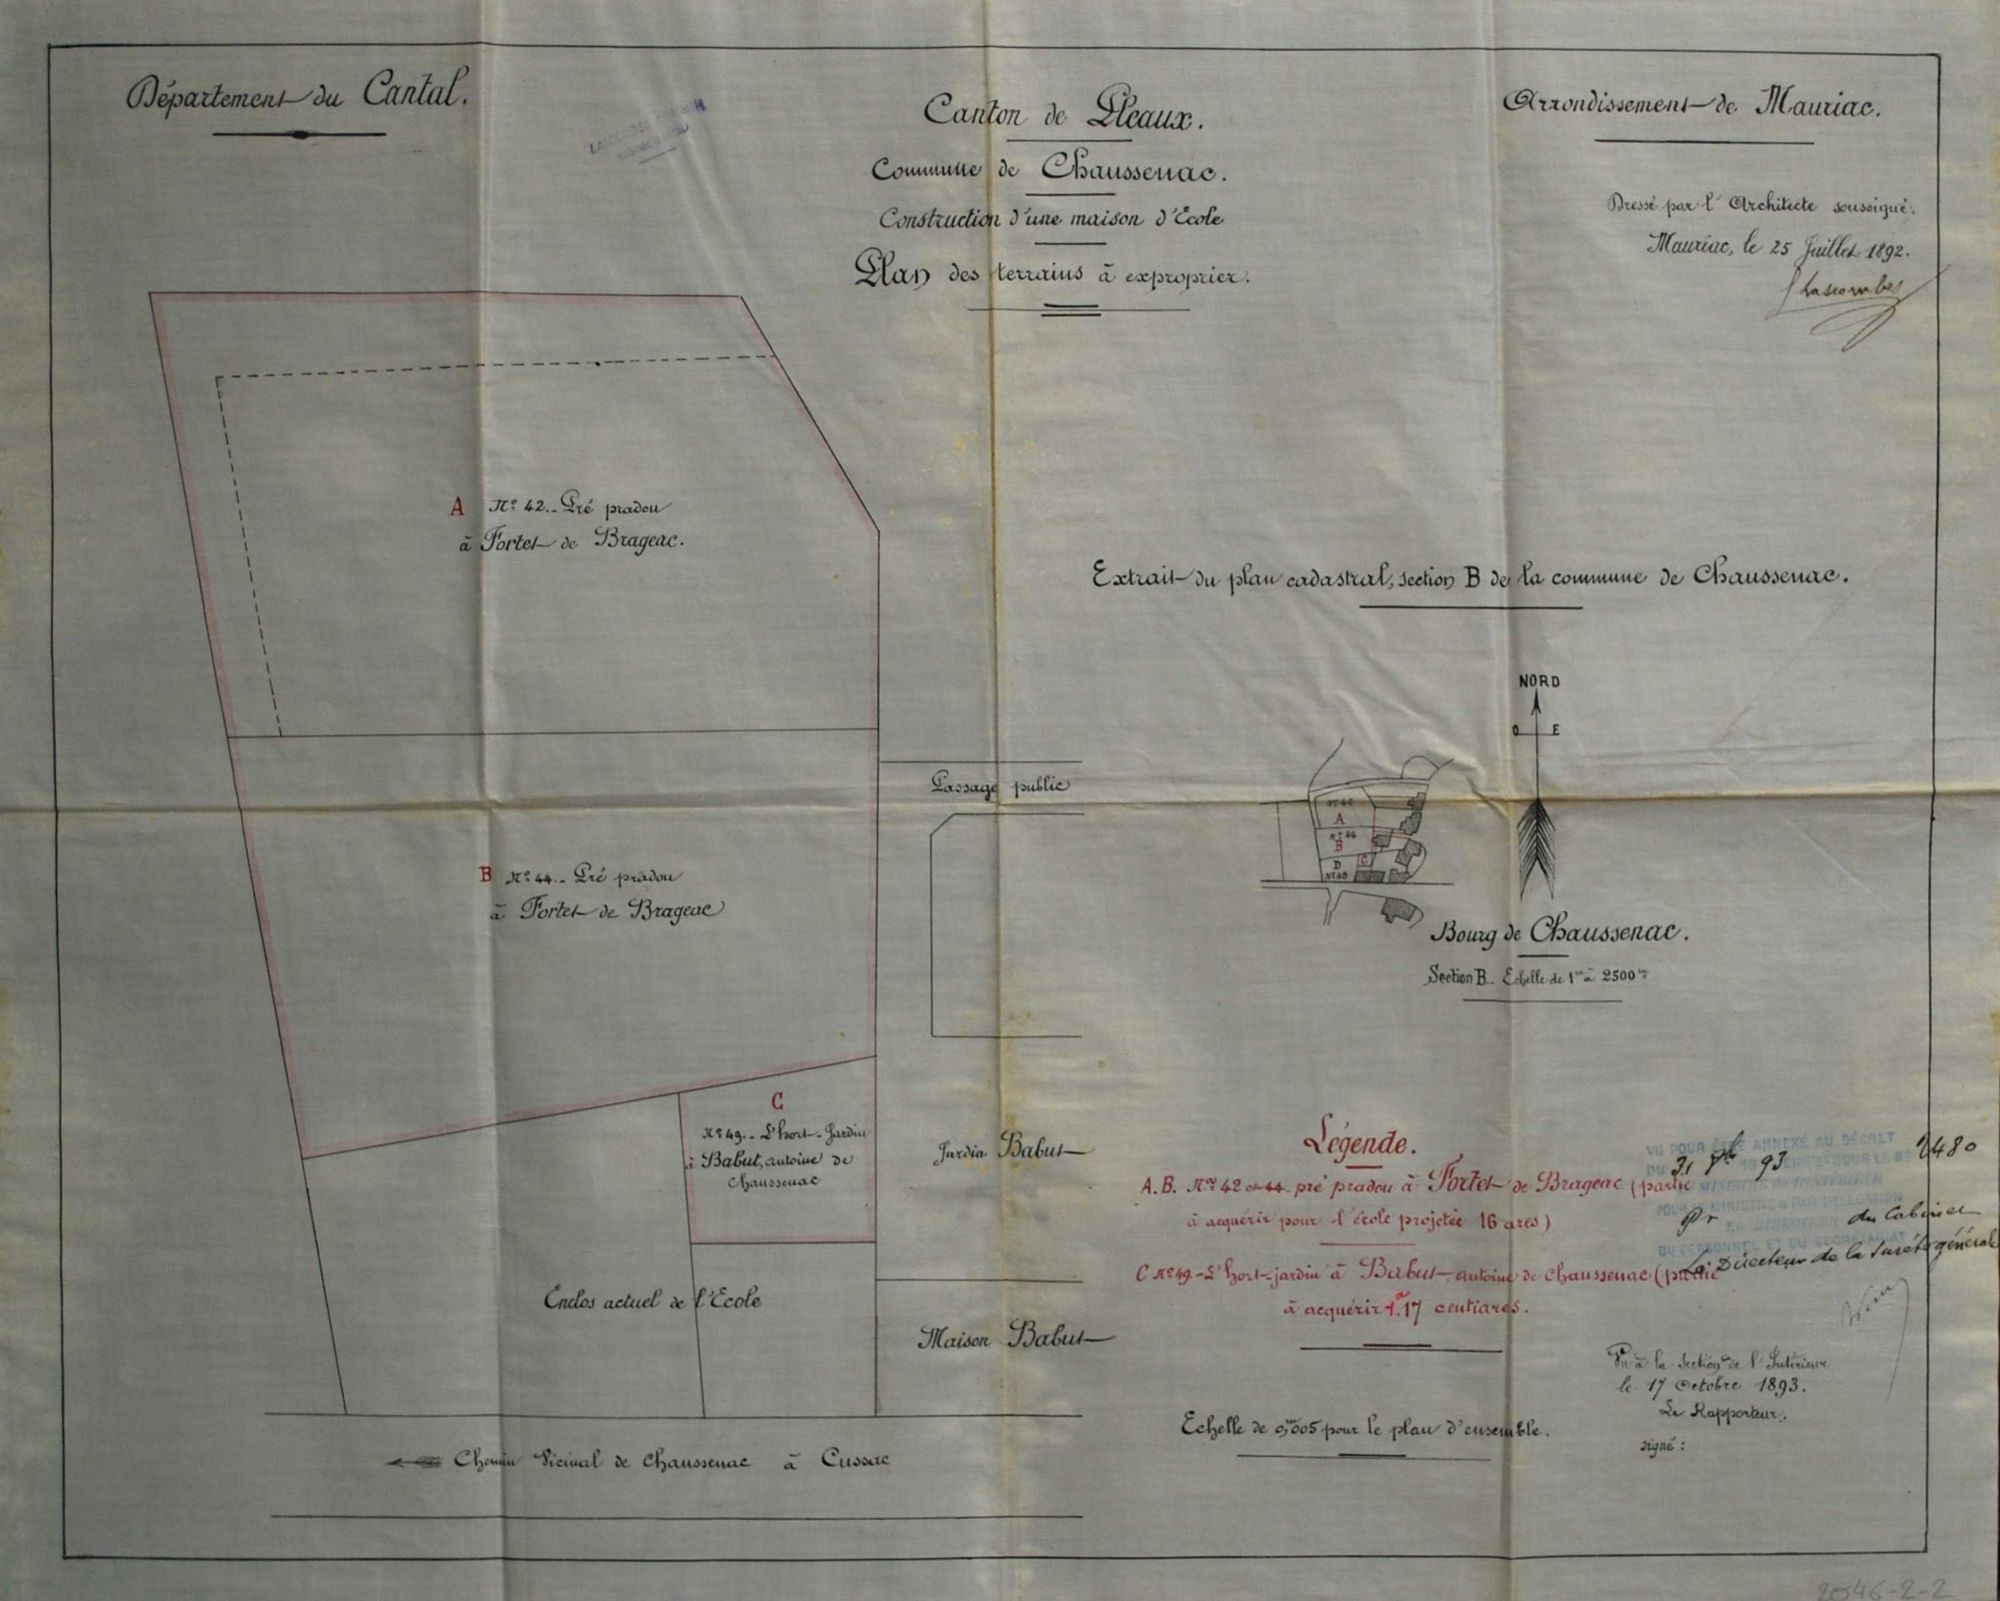 Département du Cantal.
Canton de Pleaux.
Commune de Chaussenac.
Construction d'une maison d'École
Plan des terrains à exproprier.
Arrondissement de Mauriac.
Dressé par l'Architecte soussigné.
Mauriac, le 25 Juillet 1892.
Lascombes
A Nº 42.. Pré pradou
à Fortet de Brageac.
Extrait du plan cadastral, section B de la commune de Chaussenac.
NORD
O E
Nº 42
A
Nº 44
B
D
C
Nº 48
Passage public
B Nº 44.. Pré pradou
à Fortet de Brageac
Bourg de Chaussenac.
Section B.. Echelle de 1m à 2500m
C
Nº 49.. L'hort-Jardin
à Babut, antoine de
Chaussenac
Jardin Babut
Légende.
A.B. Nos 42 et 44 pré pradou à Fortet de Brageac (partie
à acquérir pour l'école projetée 16 ares)
C Nº 49.- L'hort-jardin à Babut, antoine de Chaussenac (partie
à acquérir 1a.17 centiares.
VU POUR ÊTRE ANNEXÉ AU DÉCRET
31 93 2480
Pr du Cabinet
DU PERSONNEL ET DU SECRÉTARIAT
Le Directeur de la Sureté générale
Enclos actuel de l'Ecole
Maison Babut
Vu à la Section de l'Intérieur
le 17 Octobre 1893.
Le Rapporteur,
signé :
Echelle de 0,m005 pour le plan d'ensemble.
Chemin Vicinal de Chaussenac à Cussac
20546-2-2